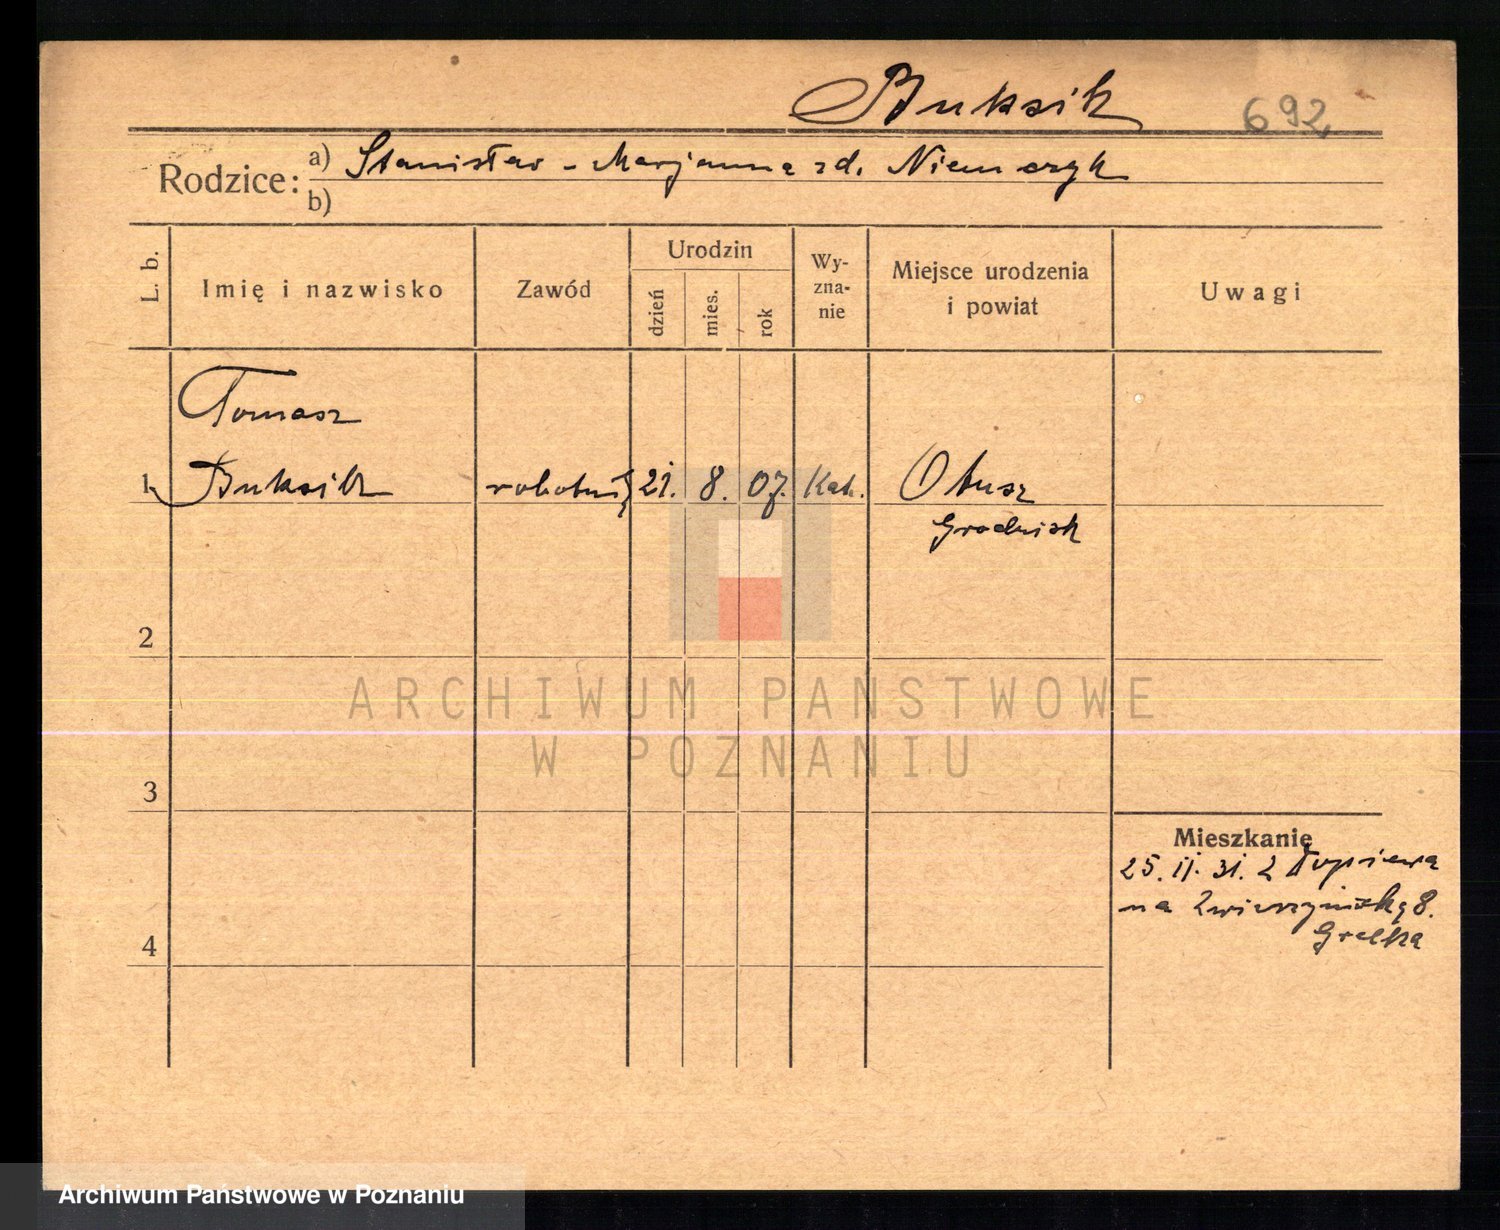 Buksik 692
Rodzice: a) Stanisław - Marjanna zd. Niemczyk
b)
L. b.
Imię i nazwisko
Zawód
Urodzin
dzień
mies.
rok
Wy-
zna-
nie
Miejsce urodzenia
i powiat
Uwagi
Tomasz
1 Buksik robotnik 21. 8. 07. Kat. Otusz
Grodzisk
2
ARCHIWUM PANSTWOWE
W POZNANIU
3
Mieszkanie
25. II. 31. z Dopiewa
na Zwierzyniecką 8.
Grelka
4
Archiwum Państwowe w Poznaniu